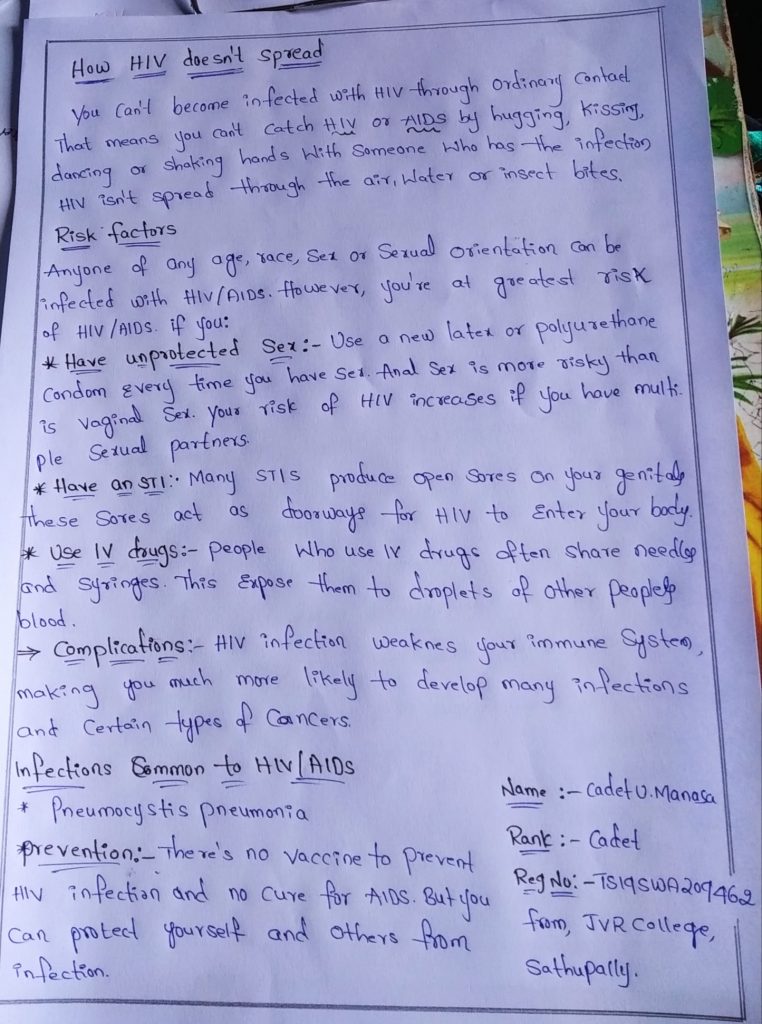 How HIV doesn't spread
You Can't become infected with HIV through ordinary Contact
That means you can't Catch HIV or AIDS by hugging, Kissing,
dancing or Shaking hands With Someone Who has the infection
HIV isn't spread through the air, Water or insect bites.
Risk factors
Anyone of any age, race, Sex or Sexual Orientation Can be
infected with HIV/AIDS. However, you're at greatest risk
of HIV/AIDS. if you:
* Have unprotected Sex:- Use a new latex or polyurethane
Condom Every time you have Sex. Anal Sex is more risky than
is Vaginal Sex. Your risk of HIV increases if you have multi-
ple Sexual partners.
* Have an STI:- Many STIs produce open Sores on your genitals
These Sores act as doorways for HIV to Enter your body.
* Use IV drugs:- People Who use IV drugs often Share needles
and Syringes. This Expose them to droplets of other people's
blood.
→ Complications:- HIV infection weaknes your immune System,
making you much more likely to develop many infections
and Certain types of Cancers.
Infections Common to HIV/AIDS
* Pneumocystis pneumonia
*prevention:- There's no vaccine to prevent
HIV infection and no Cure for AIDS. But you
Can protect yourself and others from
infection.
Name :- Cadet U. Manasa
Rank :- Cadet
Reg No:- TS19SWA209462
from, JVR College,
Sathupally.